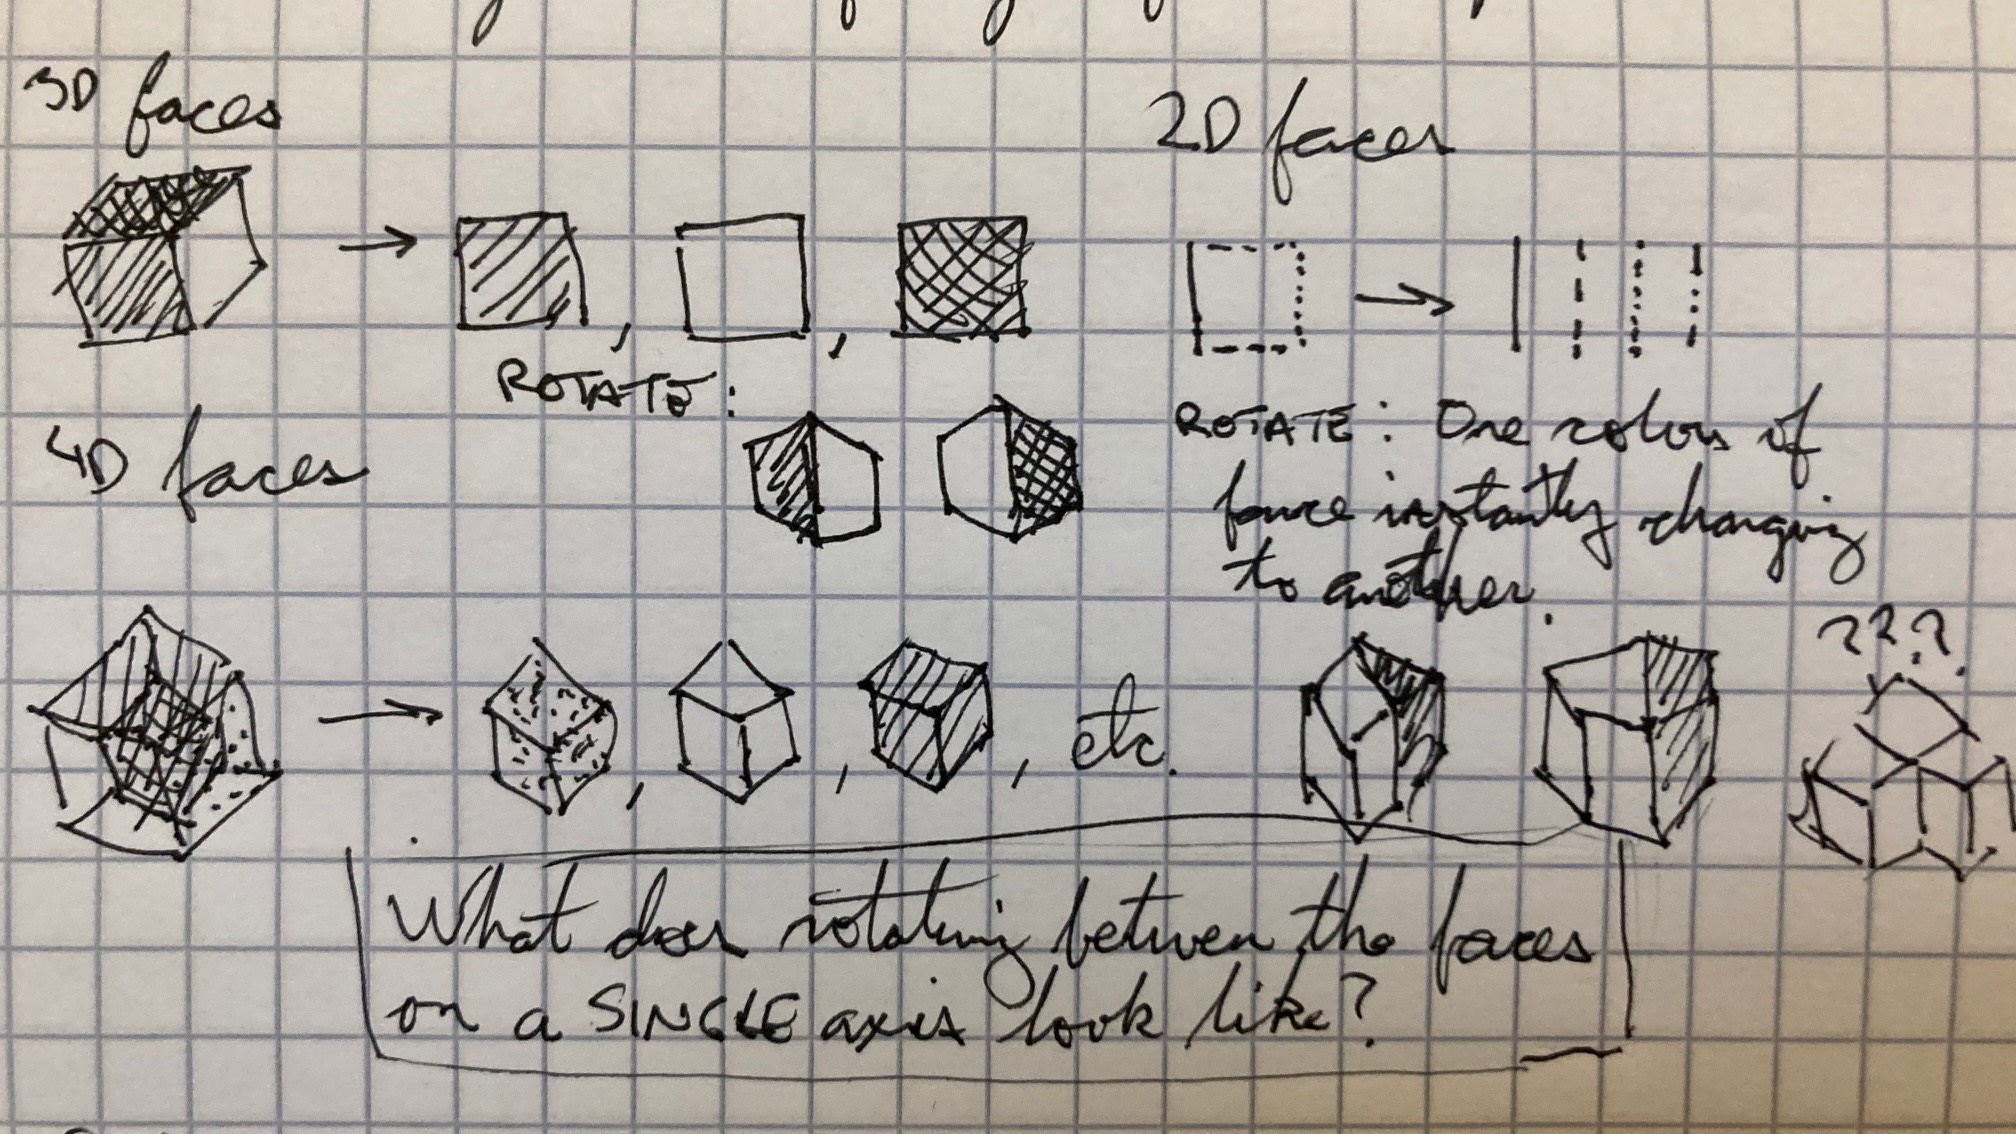 3D faces
2D faces
ROTATE:
4D faces
ROTATE: One colour of
face instantly changing
to another.
???
etc.
What does rotating between the faces
on a SINGLE axis look like?